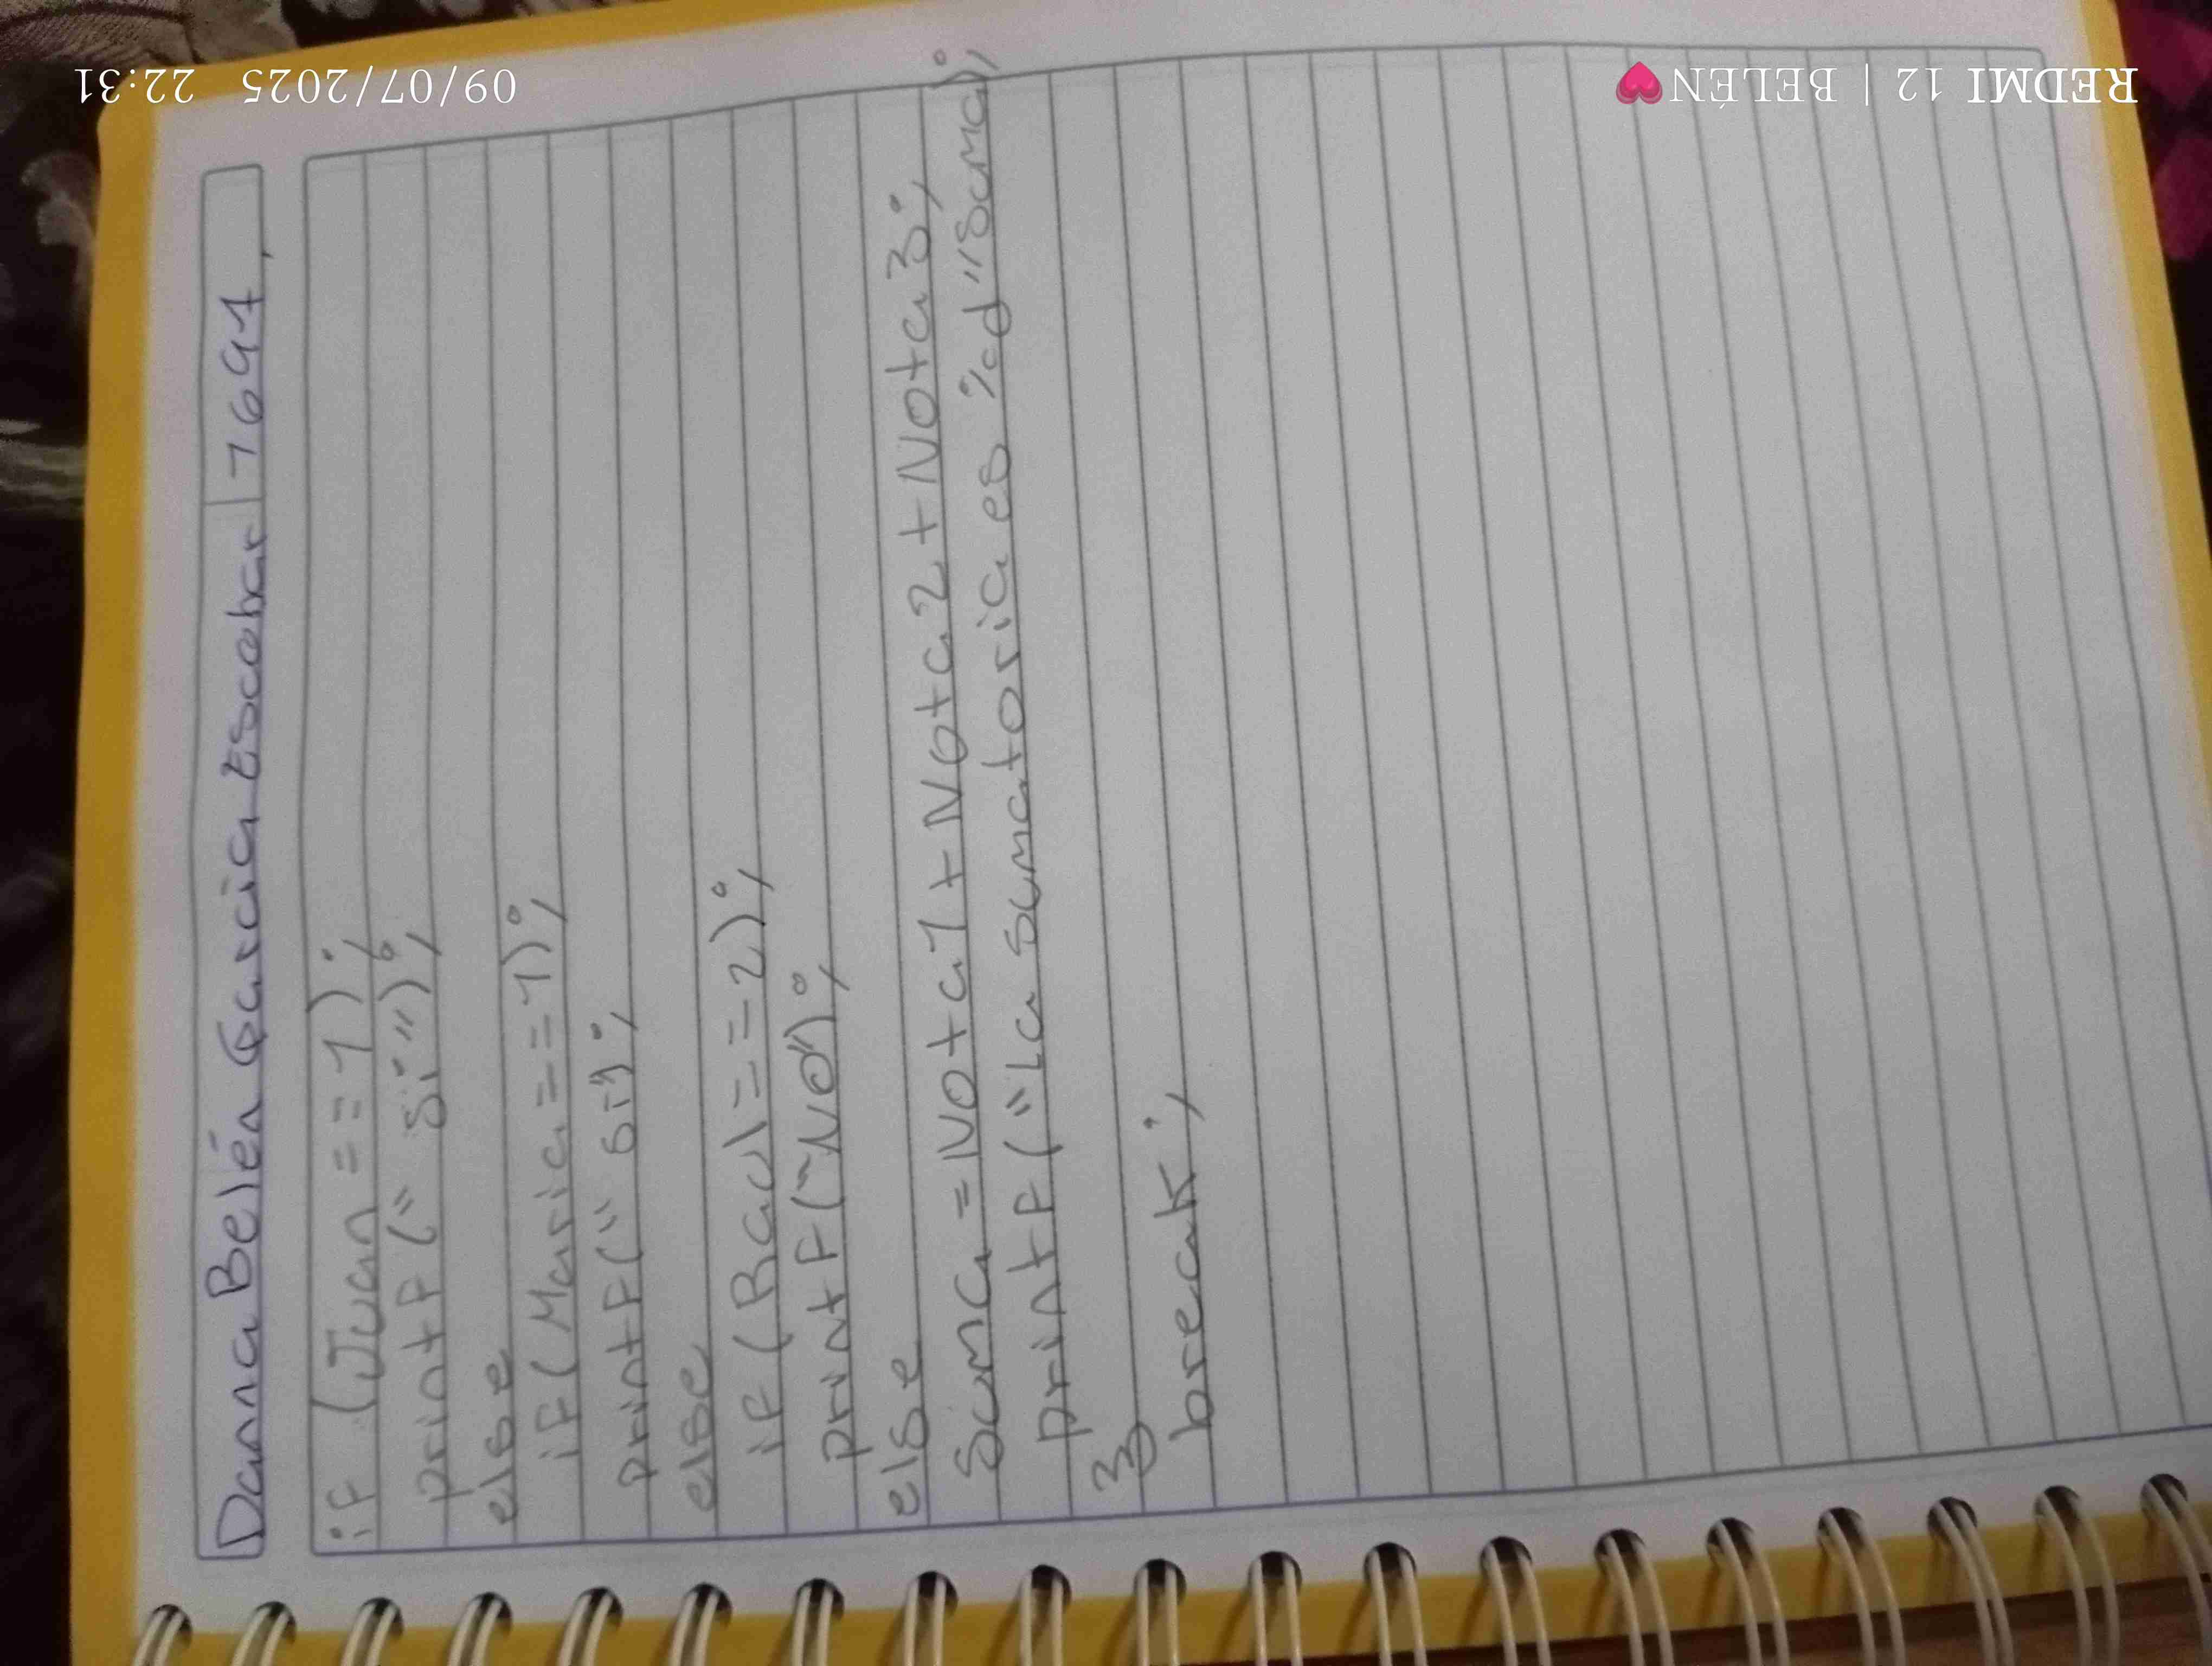 Danna Belén García Escobar | 7691
if (Juan == 1);
printf(" si");
else
if (Maria == 1);
printf(" si");
else
if (Raul == 2);
printf("No");
else
Suma = Nota1 + Nota2 + Nota3;
printf("La sumatoria es %d" suma);
}
break;
REDMI 12 | BELÉN
09/07/2025 22:31